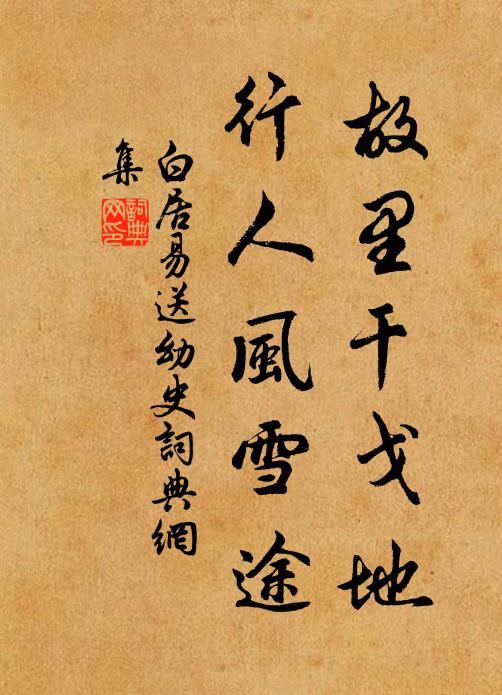 故里干戈地
行人風雪途
白居易送幼史詞典網
集
詞典
网印